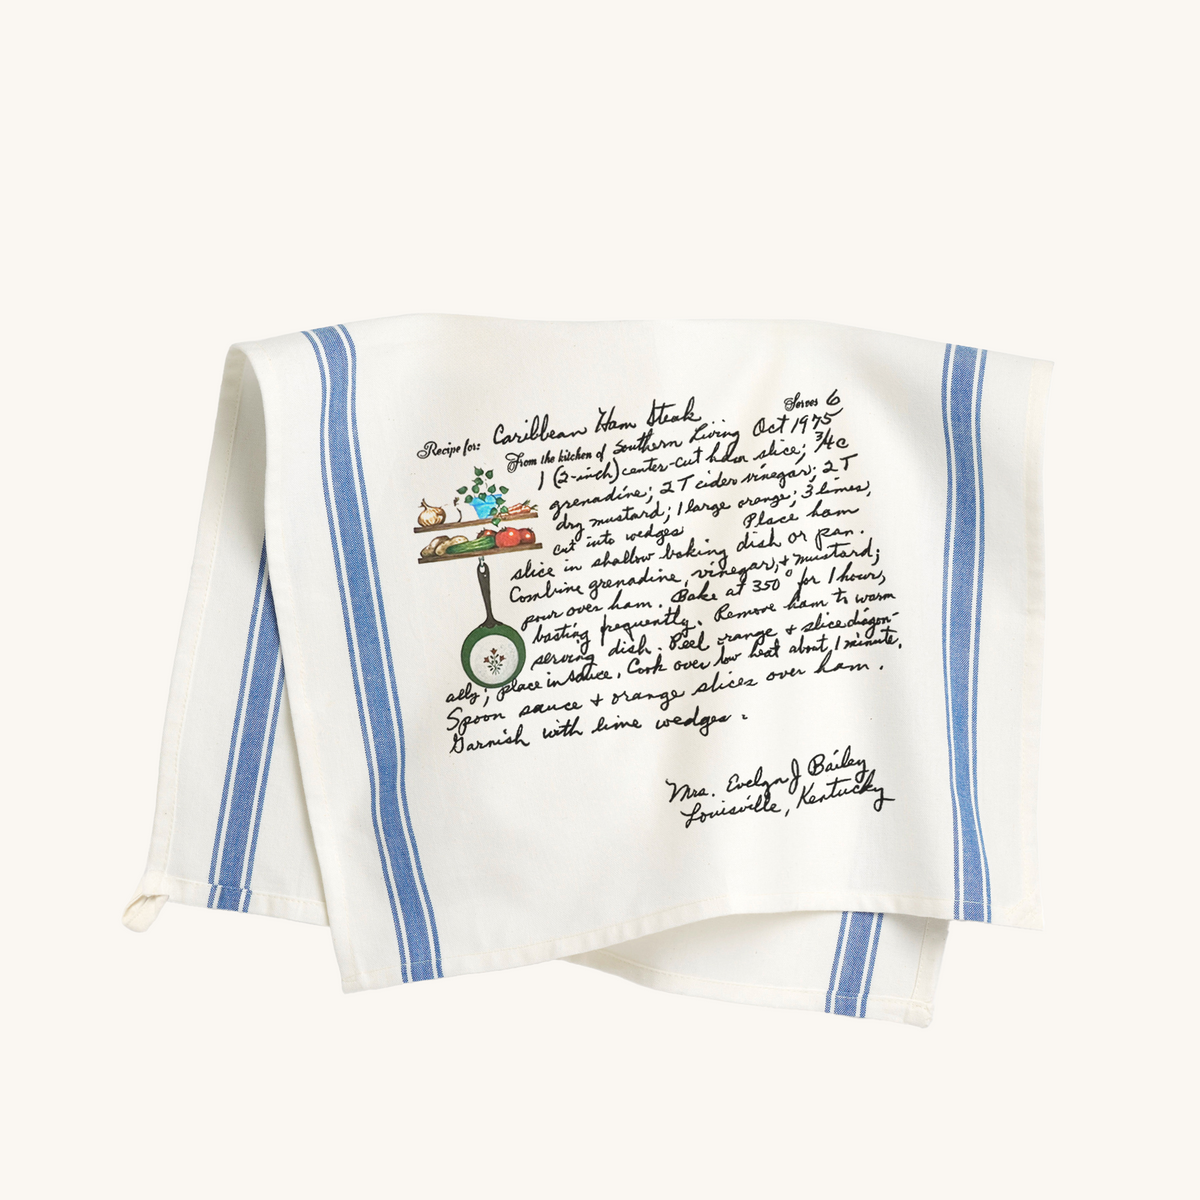 Recipe for: Caribbean Ham Steak Serves 6
From the kitchen of Southern Living Oct 1975
1 (2-inch) center-cut ham slice; 3/4 c
grenadine; 2 T cider vinegar; 2 T
dry mustard; 1 large orange; 3 limes,
cut into wedges Place ham
slice in shallow baking dish or pan.
Combine grenadine, vinegar, + mustard;
pour over ham. Bake at 350° for 1 hour,
basting frequently. Remove ham to warm
serving dish. Peel orange + slice diagon-
ally; place in sauce. Cook over low heat about 1 minute.
Spoon sauce + orange slices over ham.
Garnish with lime wedges.
Mrs. Evelyn J Bailey
Louisville, Kentucky